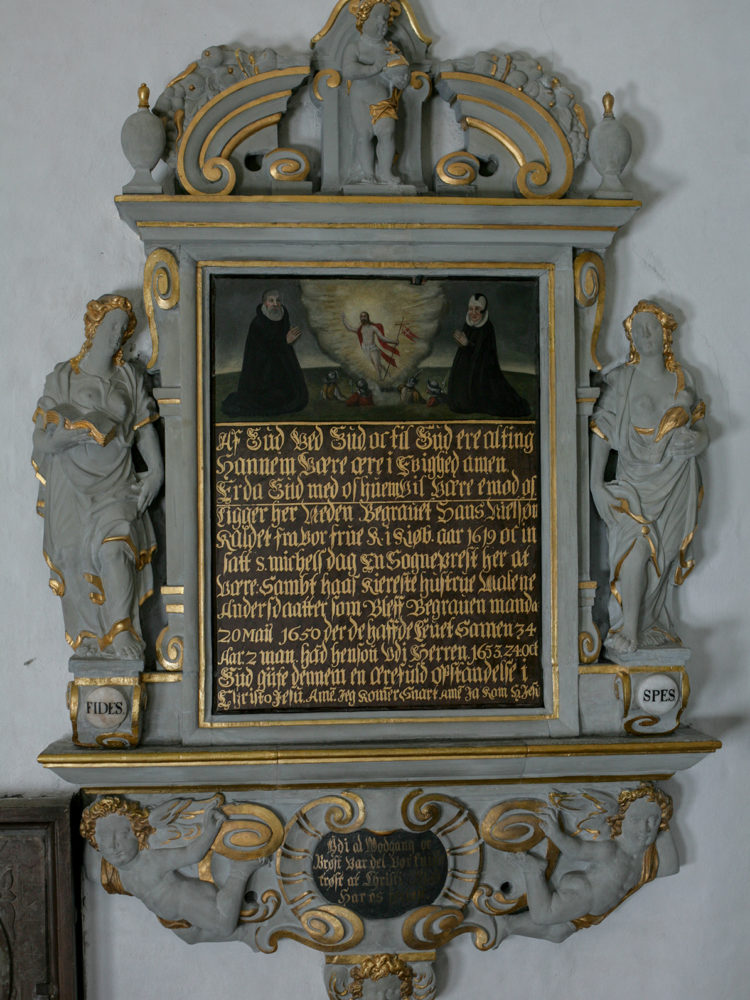 Af Gud Ved Gud oc til Gud ere alting
Hannem Være ære i Evighed amen
Er da Gud med os huem vil Være emod os
Ligger her Neden Begrauet Hans Nielsøn
Kaldet fra vor frue K i Kiøb. aar 1619 oc in
satt S. michels dag En Sogneprest her at
Være. Sambt hans Kiereste hustrue Malene
Andersdaatter som Bleff Begrauen manda.
20 Maii 1650 der de haffde Leuet Samen 34
Aar 2 man. had hensou Vdi Herren 1653 24 Oct
Gud giffe dennem en ærefuld opstandelse i
Christo Jesu. Amē Jeg Komer Snart Amē Ja Kom H. Jesu
FIDES
SPES
Vdi al Modgang oc
Brøst Var det Vor
trøst at Christus
Har os